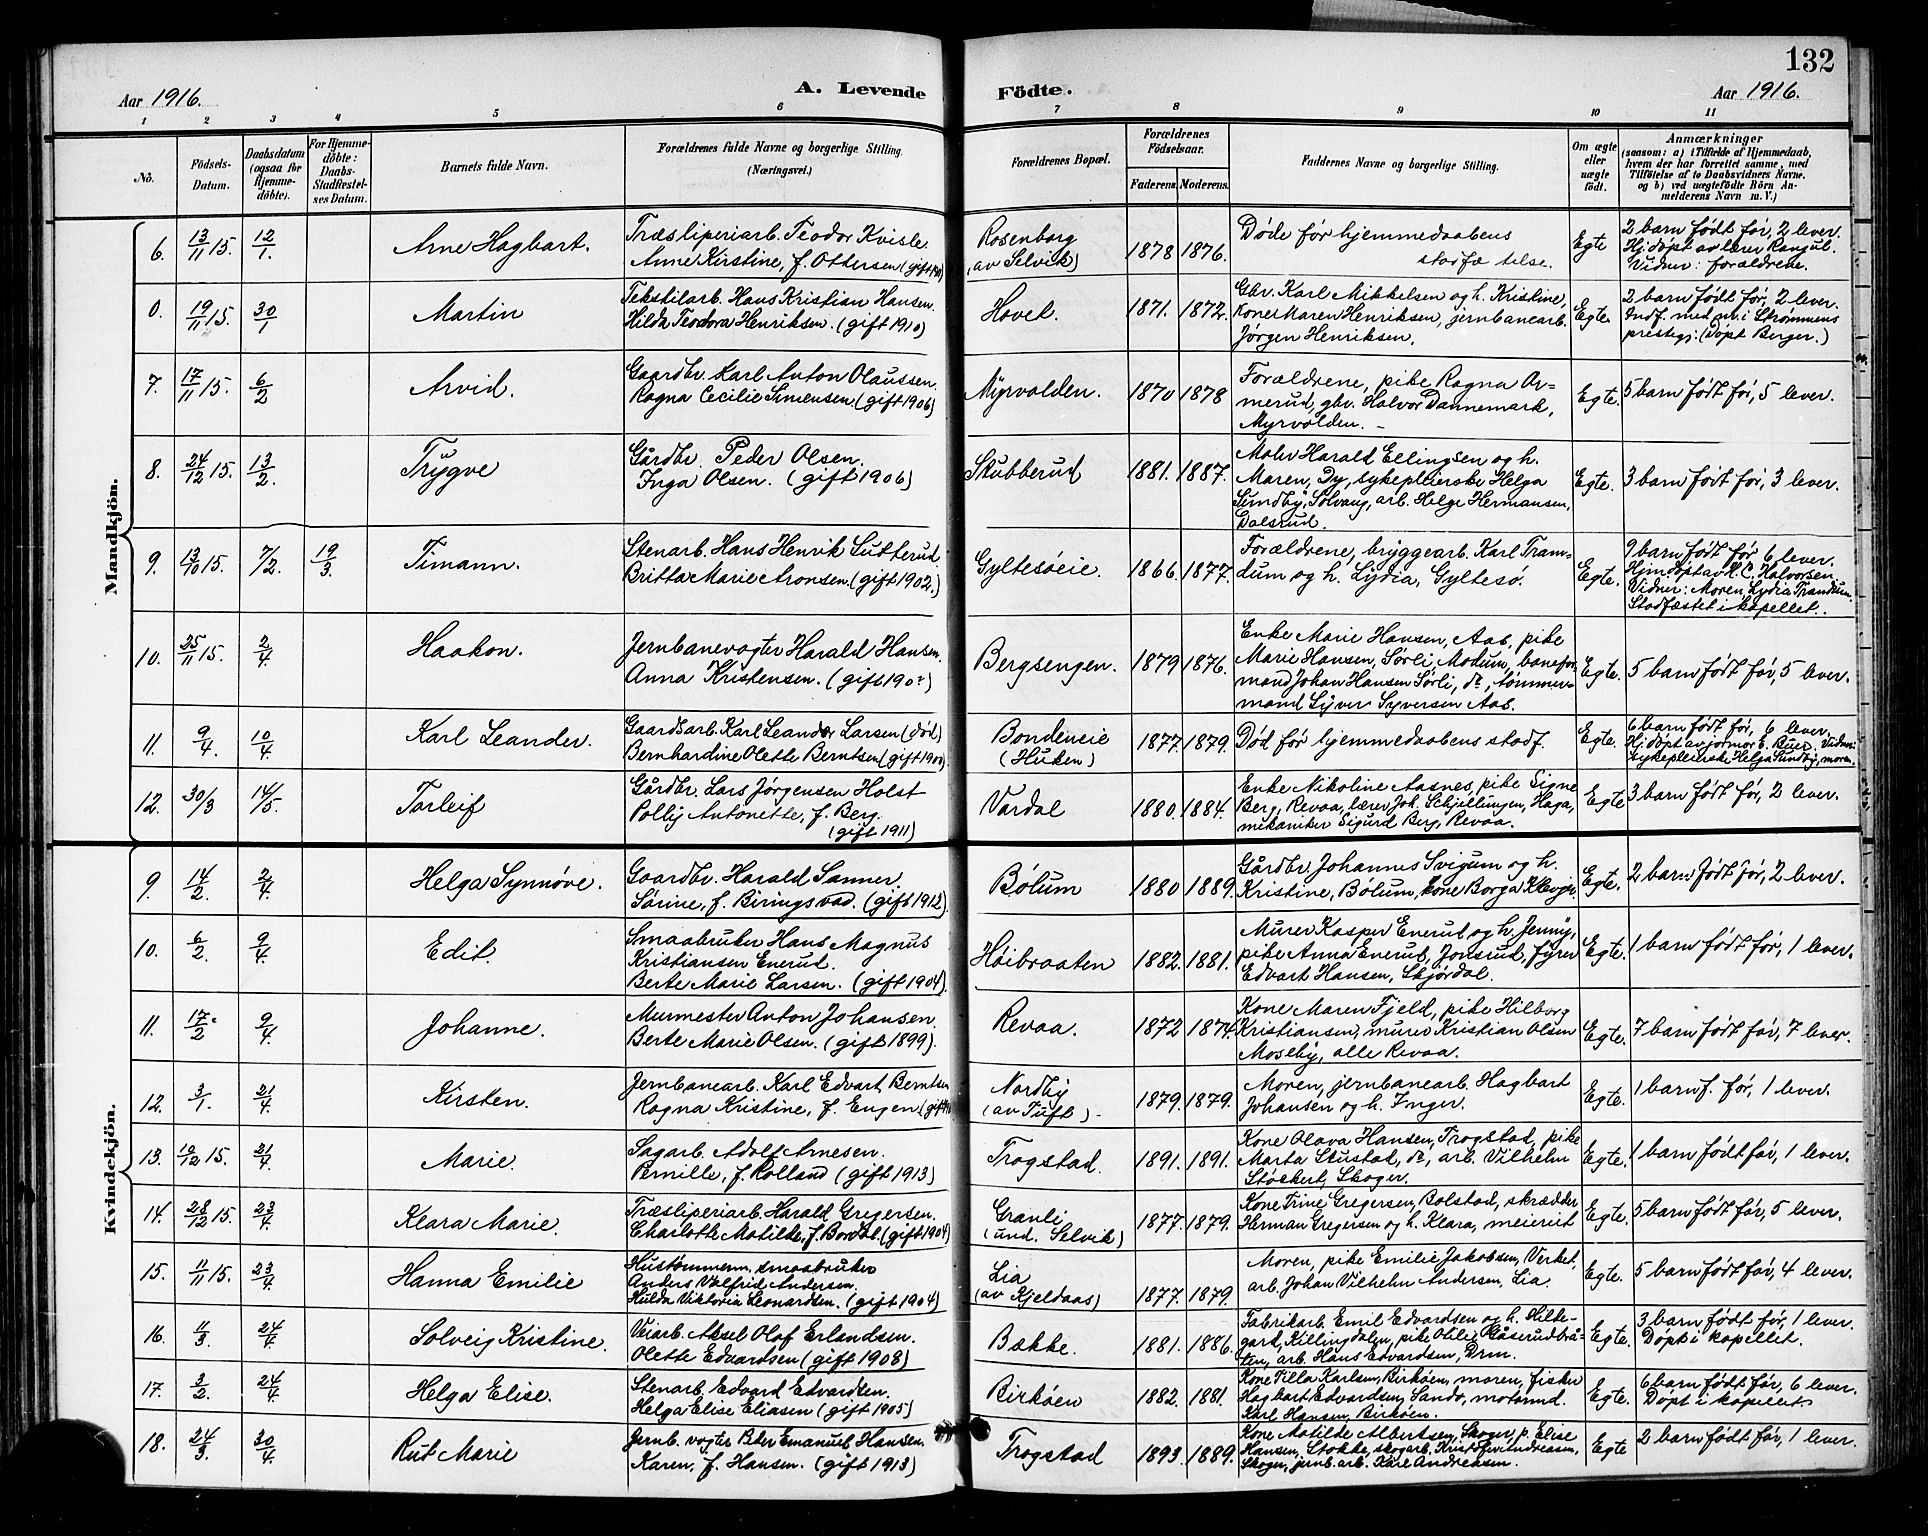 132
Aar 1916.
A. Levende Födte.
Aar 1916.
1 2 3 4 5 6 7 8 9 10 11
No.
Födsels-
Datum.
Daabsdatum
(ogsaa for
Hjemme-
döbte).
For Hjemme-
döbte:
Daabs-
Stadfæstel-
ses Datum.
Barnets fulde Navn.
Forældrenes fulde Navne og borgerlige Stilling.
(Næringsvei.)
Forældrenes Bopæl.
Forældrenes
Födselsaar.
Faderens. Moderens.
Faddernes Navne og borgerlige Stilling.
Om ægte
eller
uægte
födt.
Anmærkninger
(saasom: a) i Tilfælde af Hjemmedaab,
hvem der har forrettet samme, med
Tilföielse af to Daabsvidners Navne,
og b) ved uægtefödte Börn An-
melderens Navn m. V.)
Mandkjön.
6. 13/11 15. 12/1. Arne Hagbart.
Træsliperiarb. Teodor Kvisle.
Anne Kirstine, f. Ottersen (gift
Rosenborg
(av Selvik)
1878 1876.
Døde før hjemmedaabens
stadfæ telse.
Egte
2 barn født før, 2 lever.
Hj. døpt av lærer Rangul.
Vidner: forældrene.
0. 19/11 15. 30/1 Martin
Tekstilarb. Hans Kristian Hansen.
Hilda Teodora Henriksen. (gift 1910)
Hovet.
1871. 1872.
Gbr. Karl Mikkelsen og h. Kristine,
Kone Maren Henriksen, jernbanearb.
Jørgen Henriksen.
Egte.
2 barn født før, 2 lever.
Indf. med nr. i Strømmens
prestegj. (Døpt Berger.)
7. 17/11 15. 6/2 Arvid.
Gaardbr. Karl Anton Olaussen.
Ragna Cecilie Simensen. (gift 1906)
Myrvolden.
1870 1878
Forældrene, pike Ragna Ar-
merud, gbr. Halvor Dannemark,
Myrvolden. -
Egte.
5 barn født før, 5 lever.
8. 24/12 15. 13/2. Trygve
Gårdbr. Peder Olsen.
Inga Olsen. (gift 1906)
Skubberud
1881. 1887.
Maler Harald Ellingsen og h.
Maren, Dy, sykepleierske Helga
Sundby, Solvang, arb. Helge Hermansen,
Dalsrud.
Egte.
3 barn født før, 3 lever.
9. 13/10 15. 7/2. 19/3. Timann.
Stenarb. Hans Henrik Sutterud
Britta Marie Aronsen. (gift 1902.)
Gyltesøeie.
1866. 1877.
Forældrene, bryggearb. Karl Tran-
dum og h. Lydia, Gyltesø.
Egte.
9 barn født før 6 lever.
Hjm. døpt av H. C. Halvorsen
Vidner: Moren, Lydia Trandum.
Stadfæstet i kapellet.
10. 25/11 15. 2/4. Haakon.
Jernbanevogter Harald Hansen.
Anna Kristensen.
Bergsengen.
1879 1876.
Enke Marie Hansen, Aas, pike
Marie Hansen, Sørli, Modum, banefor-
mand Johan Hansen Sørli, do, tømmer-
mand Syver Syversen Aas.
Egte.
5 barn født før, 5 lever.
11. 9/4. 10/4. Karl Leander.
Gaardsarb. Karl Leander Larsen (død)
Bernhardine Olette Berntsen (gift 1900)
Bondeneie
(Huken)
1877. 1879.
Død før hjemmedaabens stadf.
Egte.
6 barn født før, 6 lever.
Hj. døpt av jormor E. Buer. Vidner:
sykepleierske Helga Sundby, moren.
12. 30/3 14/5. Torleif
Gårdbr. Lars Jørgensen Holst
Polly Antonette, f. Berg.
(gift 1911)
Vardal
1880. 1884.
Enke Nikoline Aasnes, pike Signe
Berg, Revaa, lærer Joh. Schjellingen, Haga,
mekaniker Sigurd Berg, Revaa.
Egte
3 barn født før, 2 lever.
Kvindekjön.
9. 14/2. 2/4. Helga Synnøve.
Gaardbr. Harald Sanner.
Sørine, f. Biringsvad. (gift 1912)
Bølum
1880 1889.
Gårdbr Johannes Svigum og h.
Kristine, Bølum, kone Borga
Egte.
2 barn født før, 2 lever.
10. 6/2. 9/4. Edit.
Smaabruker Hans Magnus
Kristiansen Enerud.
Berte Marie Larsen. (gift 1904)
Høibraaten
1882. 1881.
Murer Kasper Enerud og h. Jenny,
pike Anna Enerud, Jonsrud, fyrer
Edvart Hansen, Skjørdal.
Egte.
1 barn født før, 1 lever.
11. 17/2. 9/4. Johanne.
Murmester Anton Johansen.
Berte Marie Olsen. (gift 1899).
Revaa.
1872 1874.
Kone Maren Fjeld, pike Hilborg
Kristiansen, murer Kristian Olsen
Moseby, alle Revaa.
Egte.
7 barn født før, 7 lever.
12. 3/1. 21/4. Kirsten.
Jernbanearb. Karl Edvart Berntsen
Ragna Kristine, f. Engen (gift
Nordby
(av Tuft)
1879. 1879.
Moren, jernbanearb. Hagbart
Johansen og h. Inger.
Egte.
1 barn f. før, 1 lever.
13. 19/12 15. 21/4. Marie.
Sagarb. Adolf Arnesen.
Pernille, f. Rolland (gift 1913)
Trogstad.
1891. 1891.
Kone Olava Hansen, Trogstad, pike
Marta Skustad, do, arb. Vilhelm
Støckert, Skoger.
Egte.
1 barn født før, 1 lever.
14. 28/12 15. 23/4. Klara Marie.
Træsliperiarb. Harald Gregersen.
Charlotte Matilde, f. Bordal. (gift 1904)
Granli
(und. Selvik)
1877. 1879.
Kone Trine Gregersen, Bolstad, skrædder
Herman Gregersen og h. Klara, meieriet
Egte.
5 barn født før, 5 lever.
15. 11/11 15. 23/4. Hanna Emilie
Hustømmerm. smaabruker
Anders Valfrid Andersen,
Hulda Viktoria Leonardsen. (gift 1904)
Lia
(av Kjeldaas)
1877. 1879.
Moren, pike Emilie Jakobsen, Verket,
arb. Johan Vilhelm Andersen, Lia.
Egte.
5 barn født før, 4 lever.
16. 11/3. 24/4. Solveig Kristine.
Veiarb. Aksel Olaf Erlandsen.
Olette Edvardsen (gift 1908)
Bække.
1881. 1886.
Fabrikarb. Emil Edvardsen og h. Hilde-
gard, Killingdalen, pike Otilie Gåserudbrå-
ten, arb. Hans Edvardsen, Drm.
Egte.
3 barn født før, 1 lever.
Døpt i kapellet.
17. 3/2. 24/4. Helga Elise.
Stenarb. Edvard Edvardsen.
Helga Elise Eliasen (gift 1905)
Birkøen
1882. 1881.
Kone Tilla Karlsen, Birkøen, moren, fisker
Hagbart Edvardsen, Sandø, motormd.
Karl Hansen, Birkøen.
Egte.
6 barn født før, 6 lever.
Døpt i kapellet.
18. 24/3. 30/4. Rut Marie
Jernb. vogter Peder Emanuel Hansen.
Karen, f. Hansen. (gift 1913)
Trogstad
1893. 1889.
Kone Matilde Albertsen, Skoger, p. Elise
Hansen, Stokke, skogarb. Krist. Levi Andreasen,
Skoger, jernb. arb. Karl Andreasen.
Egte
2 barn født før, 1 lever.